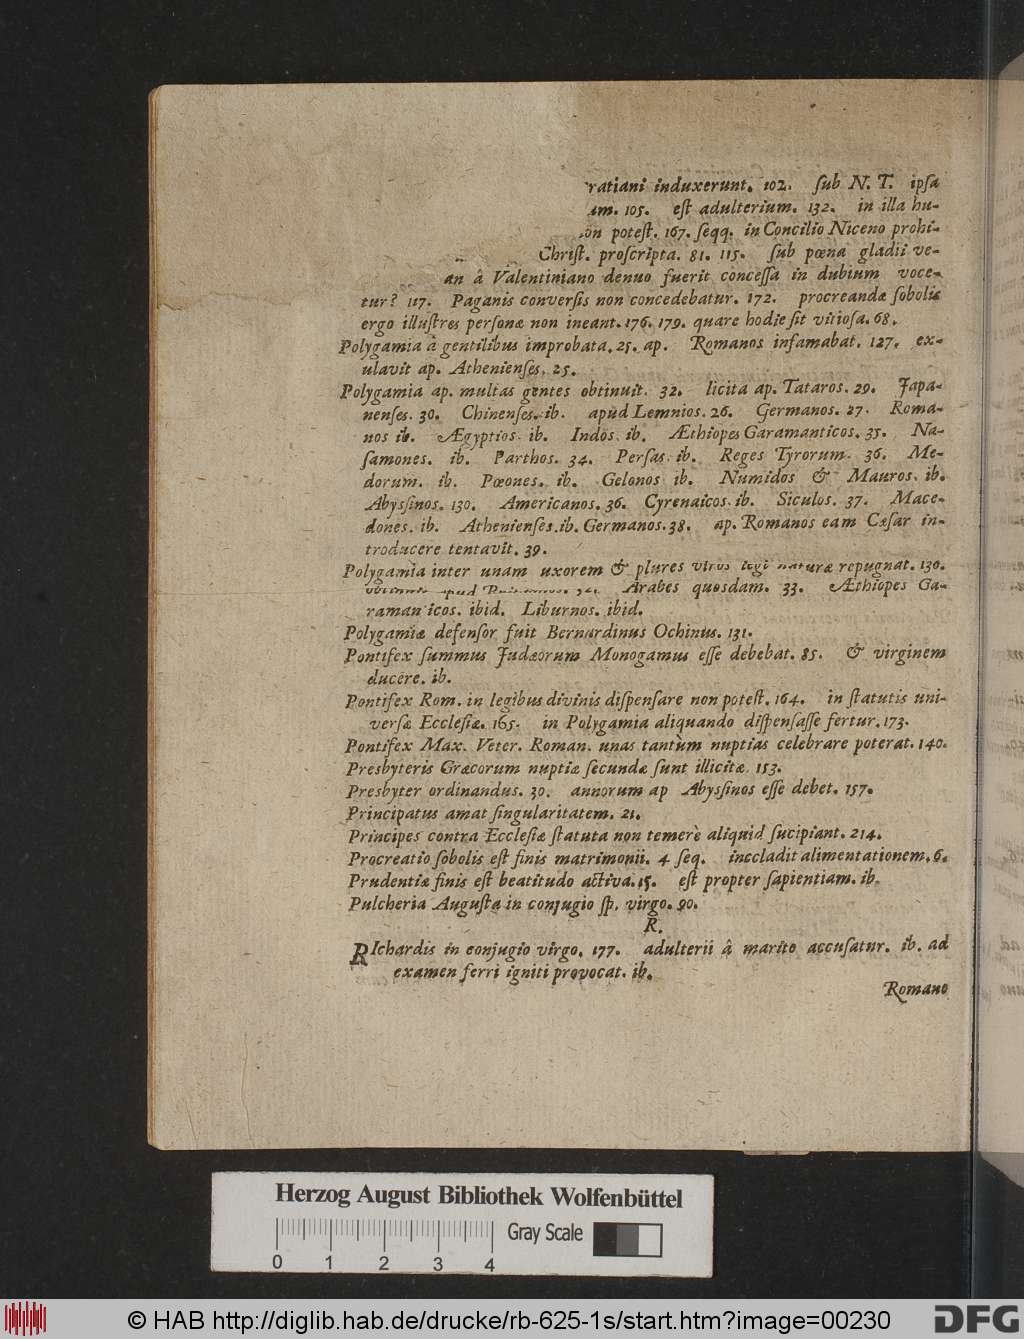 ratiani induxerunt. 102. ſub N. T. ipſa
um. 105. eſt adulterium. 132. in illa hu-
on poteſt. 167. ſeqq. in Concilio Niceno prohi-
Chriſt. proſcripta. 81. 115. ſub pœna gladii ve-
an â Valentiniano denuo fuerit conceſſa in dubium voce-
tur? 117. Paganis converſis non concedebatur. 172. procreandæ ſobolis
ergo illuſtres perſonæ non ineant. 176. 179. quare hodie ſit vitioſa. 68.
Polygamia â gentilibus improbata. 25. ap. Romanos infamabat. 127. ex-
ulavit ap. Athenienſes. 25.
Polygamia ap. multas gentes obtinuit. 32. licita ap. Tataros. 29. Japa-
nenſes. 30. Chinenſes. ib. apud Lemnios. 26. Germanos. 27. Roma-
nos ib. Ægyptios. ib. Indos. ib. Æthiopes Garamanticos. 35. Na-
ſamones. ib. Parthos. 34. Perſas. ib. Reges Tyrorum. 36. Me-
dorum. ib. Pœones. ib. Gelonos ib. Numidos & Mauros. ib.
Abyſſinos. 130. Americanos. 36. Cyrenaicos. ib. Siculos. 37. Mace-
dones. ib. Athenienſes. ib. Germanos. 38. ap. Romanos eam Cæſar in-
troducere tentavit. 39.
Polygamia inter unam uxorem & plures viros legi naturæ repugnat. 130.
Arabes quosdam. 33. Æthiopes Ga-
ramanticos. ibid. Liburnos. ibid.
Polygamiæ defenſor fuit Bernardinus Ochinus. 131.
Pontifex ſummus Judæorum Monogamus eſſe debebat. 85. & virginem
ducere. ib.
Pontifex Rom. in legibus divinis diſpenſare non poteſt. 164. in ſtatutis uni-
verſæ Eccleſiæ. 165. in Polygamia aliquando diſpenſaſſe fertur. 173.
Pontifex Max. Veter. Roman. unas tantùm nuptias celebrare poterat. 140.
Presbyteris Græcorum nuptiæ ſecundæ ſunt illicitæ. 153.
Presbyter ordinandus. 30. annorum ap Abyſſinos eſſe debet. 157.
Principatus amat ſingularitatem. 21.
Principes contra Eccleſiæ ſtatuta non temerè aliquid ſucipiant. 214.
Procreatio ſobolis eſt finis matrimonii. 4 ſeq. inccladit alimentationem. 6.
Prudentiæ finis eſt beatitudo activa. 15. eſt propter ſapientiam. ib.
Pulcheria Auguſta in conjugio ſp. virgo. 90.
R.
RIchardis in conjugio virgo. 177. adulterii â marito accuſatur. ib. ad
examen ferri igniti provocat. ib.
Romano
Herzog August Bibliothek Wolfenbüttel
Gray Scale
0 1 2 3 4
© HAB http://diglib.hab.de/drucke/rb-625-1s/start.htm?image=00230
DFG